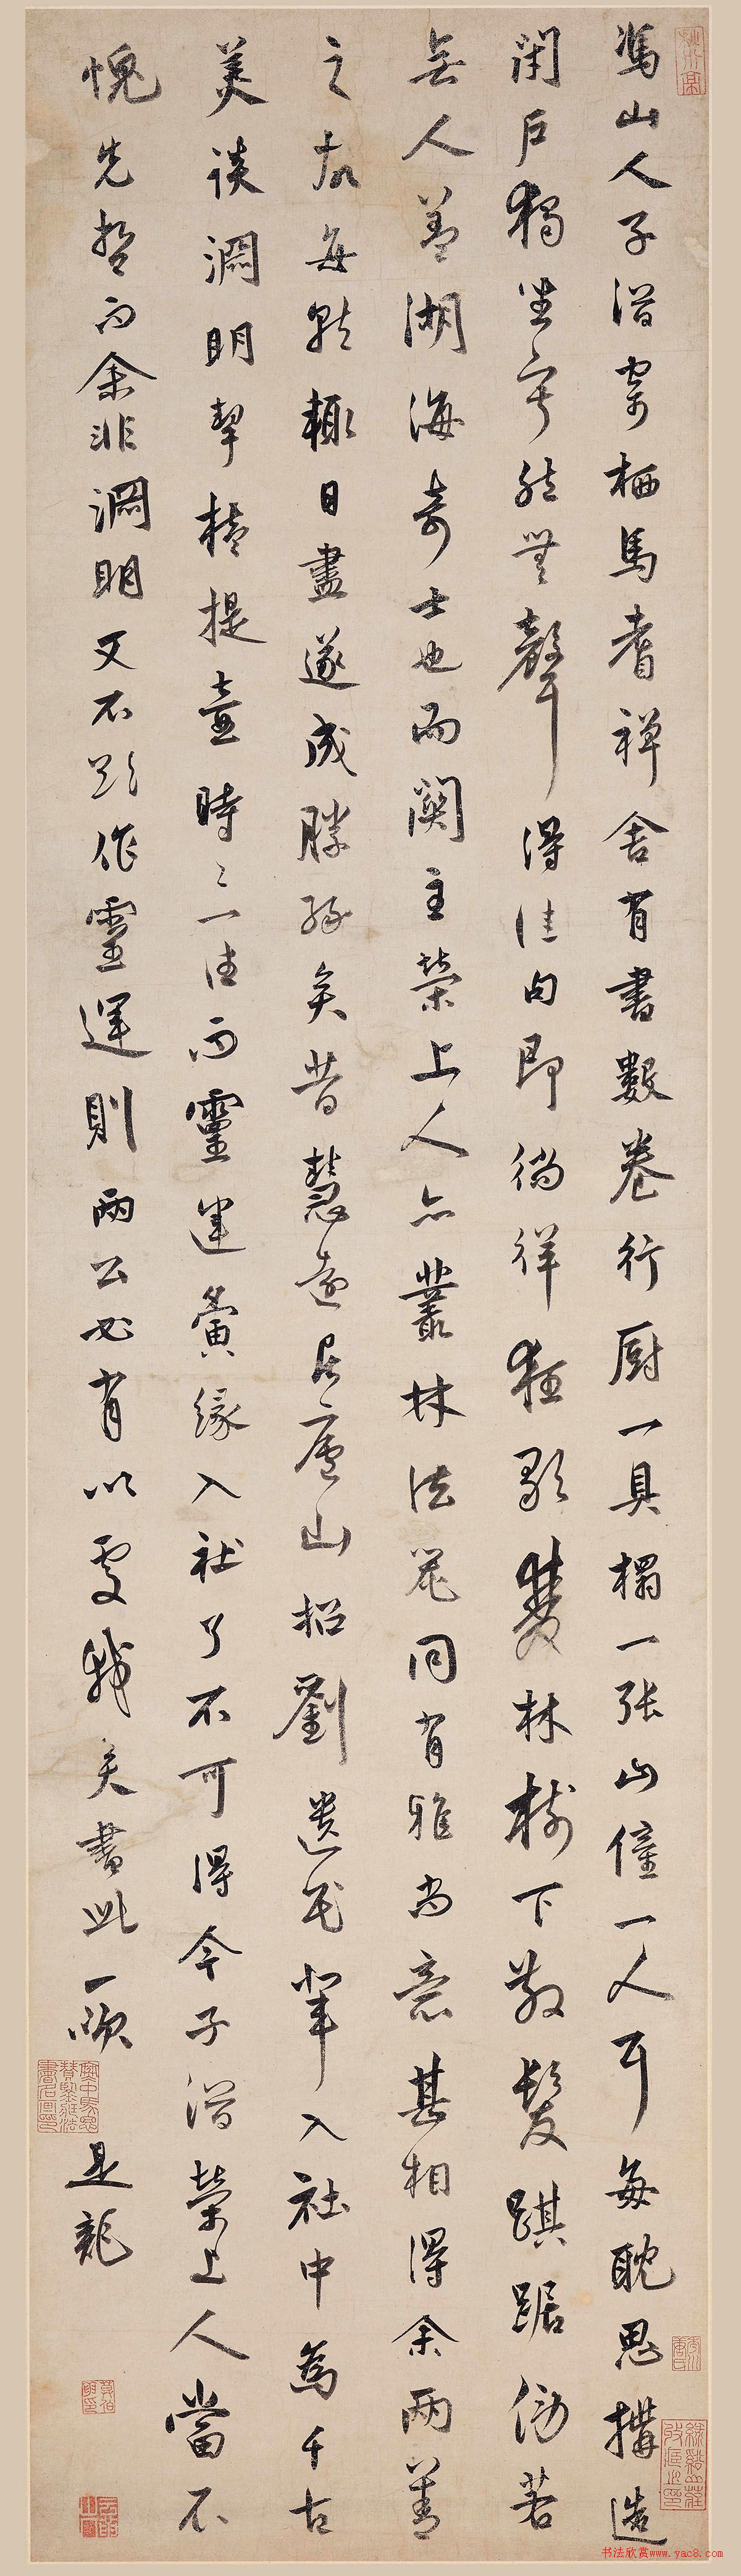 馮山人子潛寄栖馬耆禪舍有書數卷行厨一具榻一張山僮一人耳每耽思搆造
閉戶獨坐寂然無聲得佳句即徜徉狂歌雙林樹下散髮踑踞傍若
無人蓋湖海奇士也而闍主榮上人亦叢林法器同有雅尚意甚相得余兩善
之故每就輒日盡遂成勝緣矣昔慧遠居廬山招劉遺民輩入社中為千古
美談淵明挈榼提壺時時一往而靈運夤緣入社了不可得今子潛榮上人當不
愧先哲而余非淵明又不欲作靈運則兩公必有以處我矣書此一笑
是龍
書法欣赏www.yac8.com